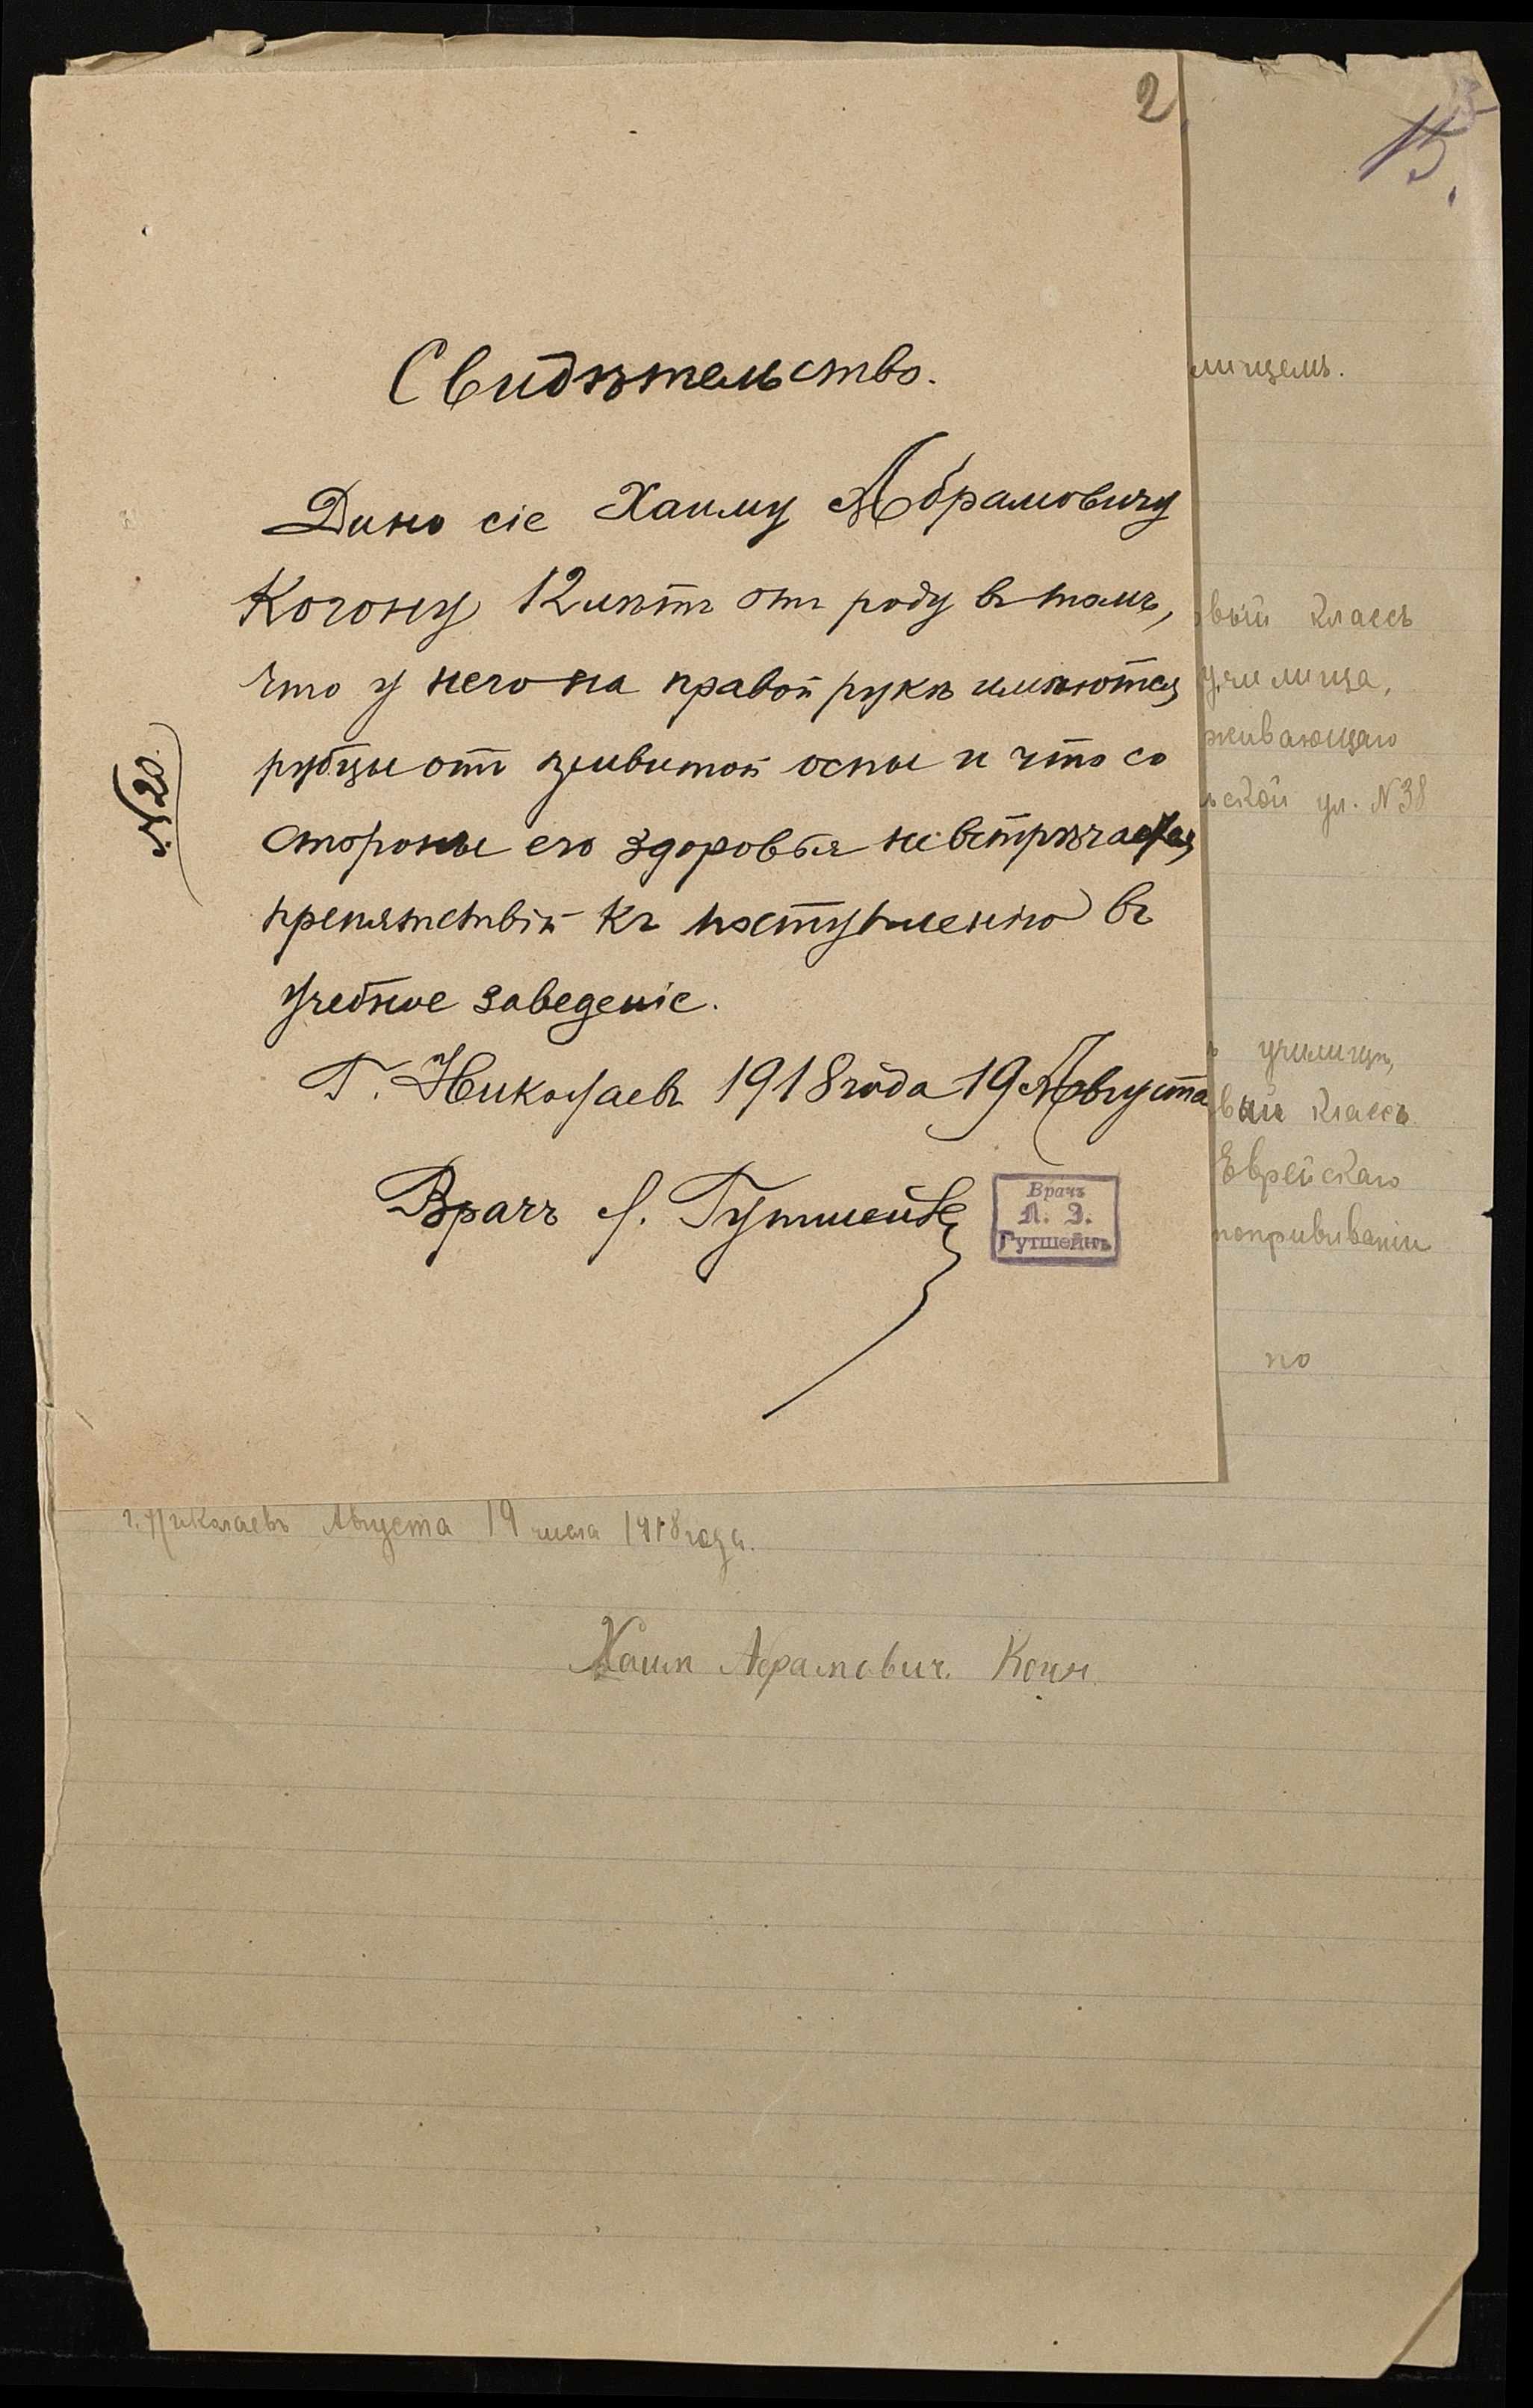 2
15.
Свидѣтельство.
Дано сіе Хаиму Абрамовичу
Когону 12 лѣтъ отъ роду въ томъ,
что у него на правой рукѣ имѣются
рубцы отъ привитой оспы и что со
стороны его здоровья не встрѣчается
препятствій къ поступленію въ
учебное заведеніе.
Г. Николаевъ 1918 года 19 Августа
Врачъ Л. Гутшейнъ
Врачъ
Л. Э.
Гутшейнъ
№ 20.
лищемъ.
вый классъ
училища,
живающаго
ской ул. N 38
училищѣ,
вый классъ
Еврейскаго
оспопрививаніи
по
г. Николаевъ Августа 19 числа 1918 года.
Хаим Абрамович. Коган